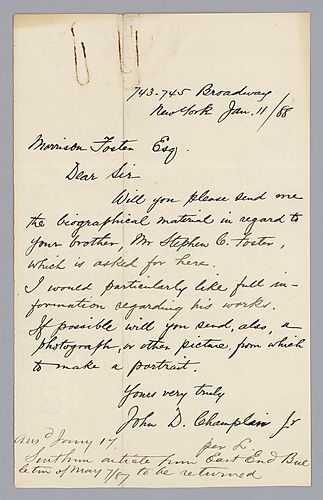 743-745 Broadway
New York Jan. 11/88
Morrison Foster Esq.
Dear Sir
Will you please send me
the biographical material in regard to
your brother, Mr Stephen C. Foster,
which is asked for here.
I would particularly like full in-
formation regarding his works.
If possible will you send, also, a
photograph, or other picture from which
to make a portrait.
Yours very truly
John D. Champlin Jr
per L
Ansd Jany 17
Sent him article from East End Bul
letin of May 7/87 to be returned